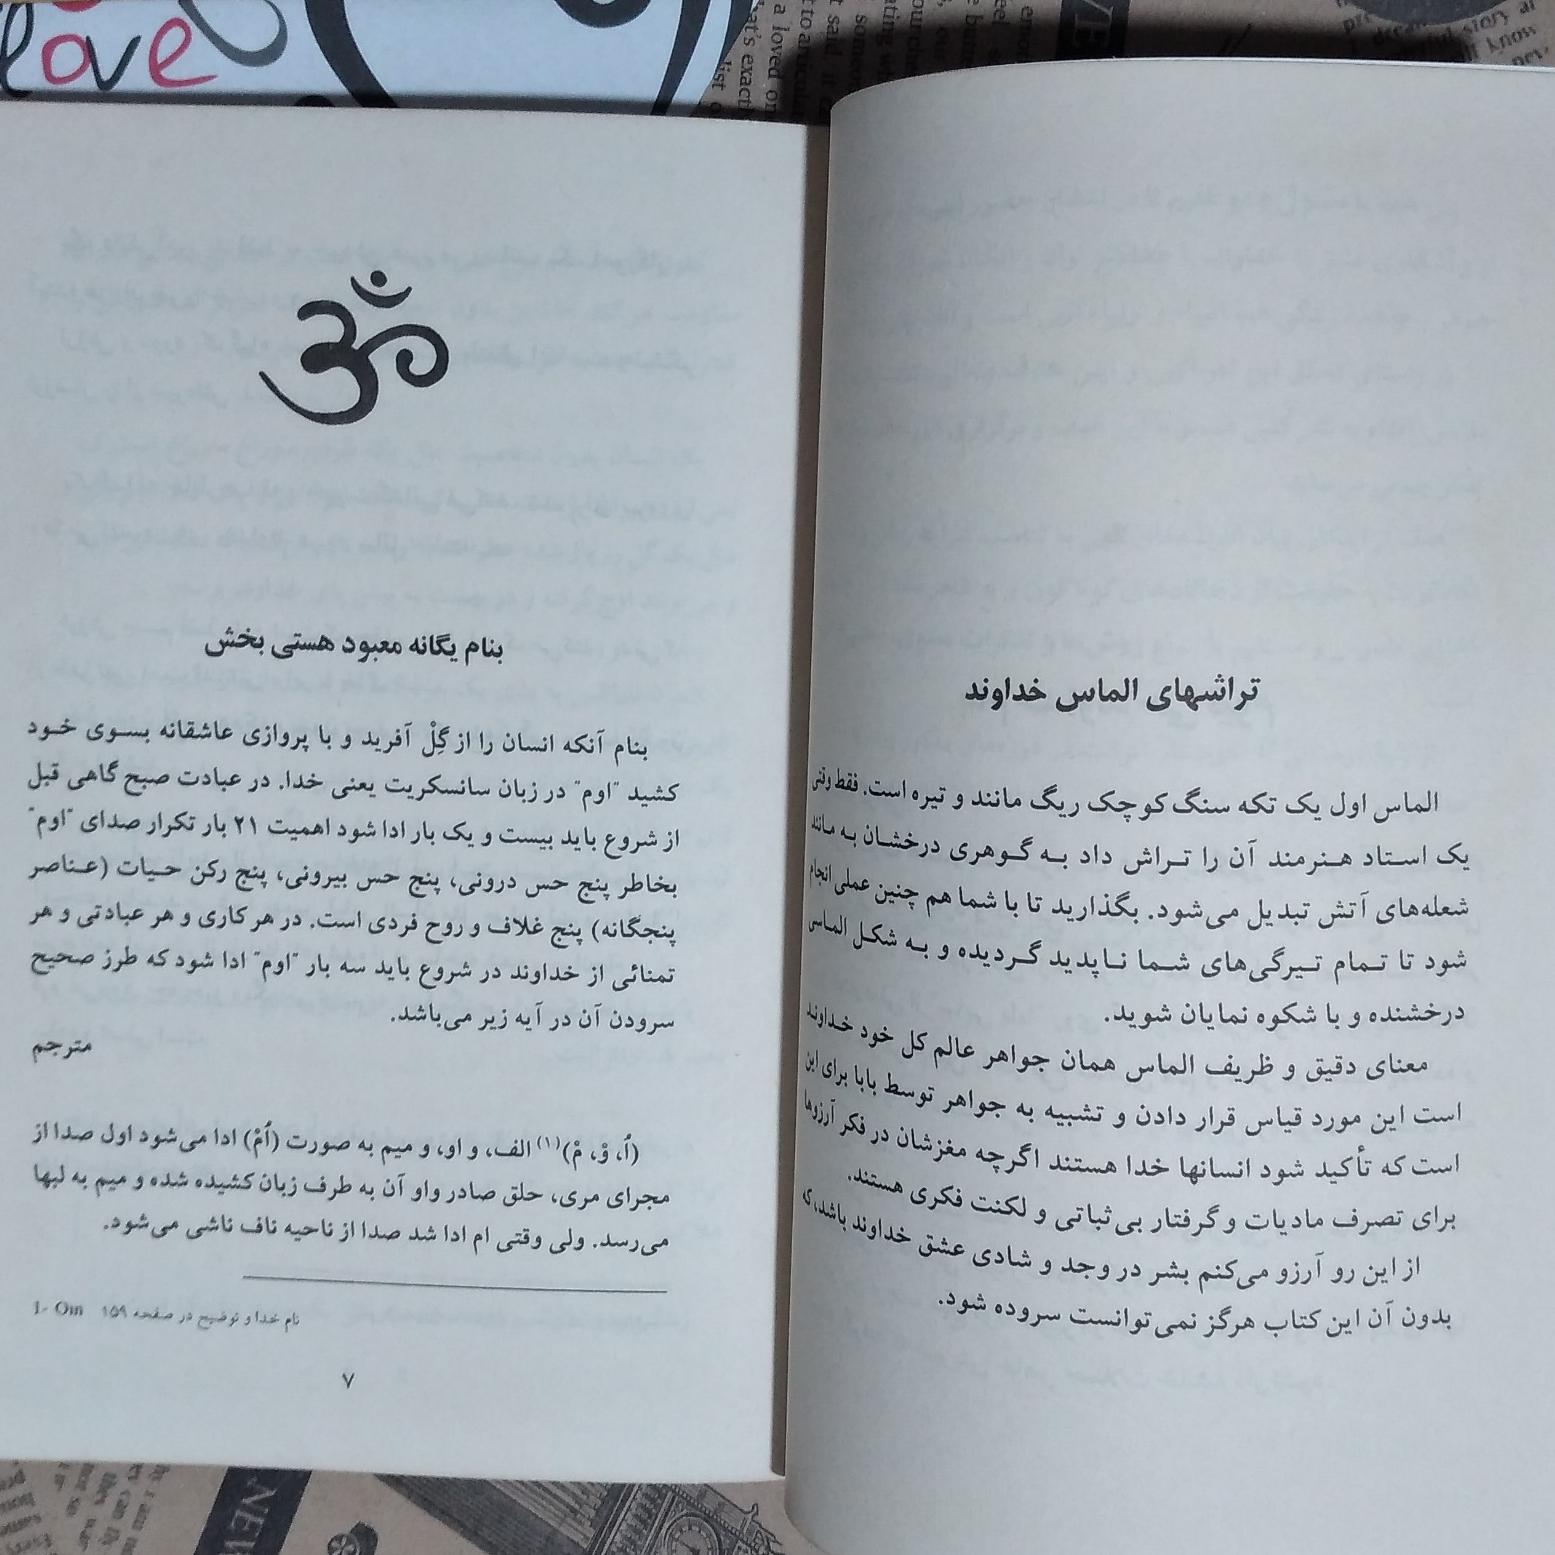 love
تراشهای الماس خداوند
الماس اول یک تکه سنگ کوچک ریگ مانند و تیره است. فقط وقتی
یک استاد هنرمند آن را تراش داد به گوهری درخشان به مانند
شعله‌های آتش تبدیل می‌شود. بگذارید تا با شما هم چنین عملی انجام
شود تا تمام تیرگی‌های شما ناپدید گردیده و به شکل الماسی
درخشنده و با شکوه نمایان شوید.
معنای دقیق و ظریف الماس همان جواهر عالم کل خود خداوند
است این مورد قیاس قرار دادن و تشبیه به جواهر توسط بابا برای این
است که تأکید شود انسانها خدا هستند اگرچه مغزشان در فکر آرزوها
برای تصرف مادیات و گرفتار بی‌ثباتی و لکنت فکری هستند.
از این رو آرزو می‌کنم بشر در وجد و شادی عشق خداوند باشد، که
بدون آن این کتاب هرگز نمی‌توانست سروده شود.
ॐ
بنام یگانه معبود هستی بخش
بنام آنکه انسان را از گِلْ آفرید و با پروازی عاشقانه بسوی خود
کشید "اوم" در زبان سانسکریت یعنی خدا. در عبادت صبح گاهی قبل
از شروع باید بیست و یک بار ادا شود اهمیت ۲۱ بار تکرار صدای "اوم"
بخاطر پنج حس درونی، پنج حس بیرونی، پنج رکن حیات (عناصر
پنجگانه) پنج غلاف و روح فردی است. در هر کاری و هر عبادتی و هر
تمنائی از خداوند در شروع باید سه بار "اوم" ادا شود که طرز صحیح
سرودن آن در آیه زیر می‌باشد.
مترجم
(اُ، وْ، مْ)(۱) الف، و او، و میم به صورت (اُمْ) ادا می‌شود اول صدا از
مجرای مری، حلق صادر واو آن به طرف زبان کشیده شده و میم به لبها
می‌رسد. ولی وقتی ام ادا شد صدا از ناحیه ناف ناشی می‌شود.
1- Om نام خدا و توضیح در صفحه ۱۵۹
۷
NEW